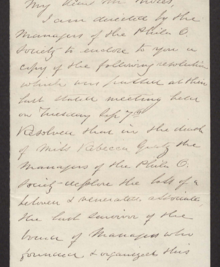 My Dear Mr
I am directed by the
Managers of the Phila O.
Society to enclose to you a
copy of the following resolution
which was passed at their
last stated meeting held
on Tuesday Sep. 7th
Resolved that in the death
of Miss Rebecca Gratz the
Managers of the Phila O.
Society deplore the loss of a
beloved & venerated
the last survivor of the
Board of Managers who
& organized this